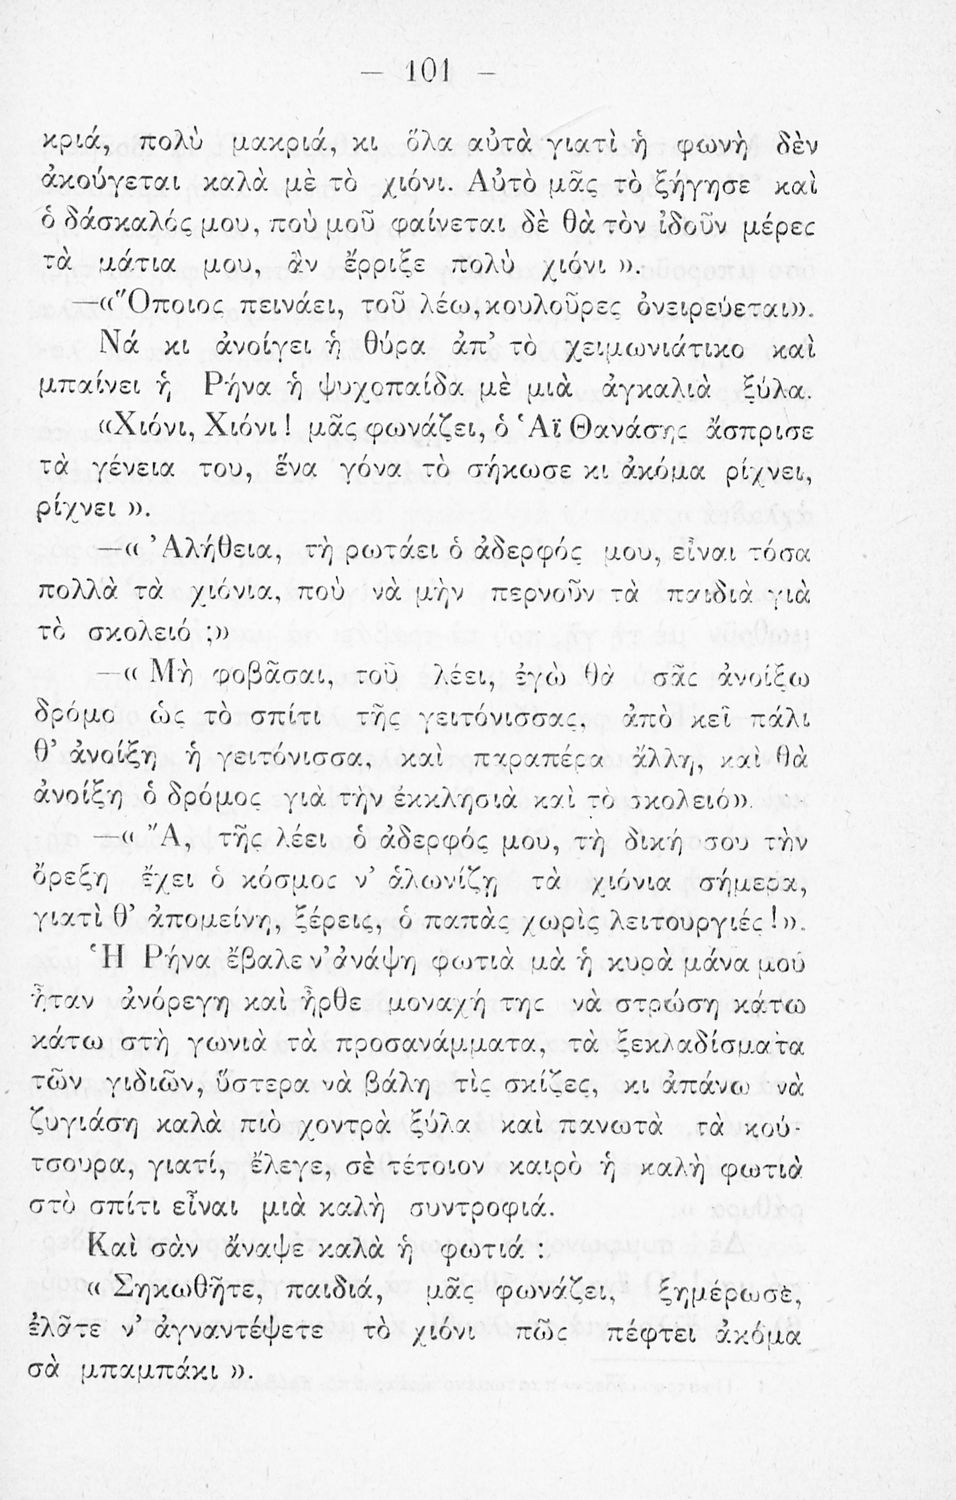 — 101 —
κριά, πολὺ μακριά, κι ὅλα αὐτὰ γιατὶ ἡ φωνὴ δὲν
ἀκούγεται καλὰ μὲ τὸ χιόνι. Αὐτὸ μᾶς τὸ ξήγησε καὶ
ὁ δάσκαλός μου, ποὺ μοῦ φαίνεται δὲ θὰ τὸν ἰδοῦν μέρες
τὰ μάτια μου, ἂν ἔρριξε πολὺ χιόνι ».
—«Ὅποιος πεινάει, τοῦ λέω, κουλοῦρες ὀνειρεύεται».
Νά κι ἀνοίγει ἡ θύρα ἀπ' τὸ χειμωνιάτικο καὶ
μπαίνει ἡ Ρήνα ἡ ψυχοπαίδα μὲ μιὰ ἀγκαλιὰ ξύλα.
«Χιόνι, Χιόνι! μᾶς φωνάζει, ὁ Ἁϊ Θανάσης ἄσπρισε
τὰ γένεια του, ἕνα γόνα τὸ σήκωσε κι ἀκόμα ρίχνει,
ρίχνει ».
—« Ἀλήθεια, τὴ ρωτάει ὁ ἀδερφός μου, εἶναι τόσα
πολλὰ τὰ χιόνια, ποὺ νὰ μὴν περνοῦν τὰ παιδιὰ γιὰ
τὸ σκολειό ;»
—« Μὴ φοβᾶσαι, τοῦ λέει, ἐγὼ θὰ σᾶς ἀνοίξω
δρόμο ὡς τὸ σπίτι τῆς γειτόνισσας, ἀπὸ κεῖ πάλι
θ' ἀνοίξῃ ἡ γειτόνισσα, καὶ παραπέρα ἄλλη, καὶ θὰ
ἀνοίξῃ ὁ δρόμος γιὰ τὴν ἐκκλησιὰ καὶ τὸ σκολειό».
—« Ἄ, τῆς λέει ὁ ἀδερφός μου, τὴ δική σου τὴν
ὄρεξη ἔχει ὁ κόσμος ν' ἁλωνίζῃ τὰ χιόνια σήμερα,
γιατὶ θ' ἀπομείνῃ, ξέρεις, ὁ παπὰς χωρὶς λειτουργιές!».
Ἡ Ρήνα ἔβαλε ν' ἀνάψῃ φωτιὰ μὰ ἡ κυρὰ μάνα μοῦ
ἦταν ἀνόρεγη καὶ ἦρθε μοναχή της νὰ στρώσῃ κάτω
κάτω στὴ γωνιὰ τὰ προσανάμματα, τὰ ξεκλαδίσματα
τῶν γιδιῶν, ὕστερα νὰ βάλῃ τὶς σκίζες, κι ἀπάνω νὰ
ζυγιάσῃ καλὰ πιὸ χοντρὰ ξύλα καὶ πανωτὰ τὰ κού-
τσουρα, γιατί, ἔλεγε, σὲ τέτοιον καιρὸ ἡ καλὴ φωτιὰ
στὸ σπίτι εἶναι μιὰ καλὴ συντροφιά.
Καὶ σὰν ἄναψε καλὰ ἡ φωτιά :
« Σηκωθῆτε, παιδιά, μᾶς φωνάζει, ξημέρωσε,
ἐλᾶτε ν' ἀγναντέψετε τὸ χιόνι πῶς πέφτει ἀκόμα
σὰ μπαμπάκι ».